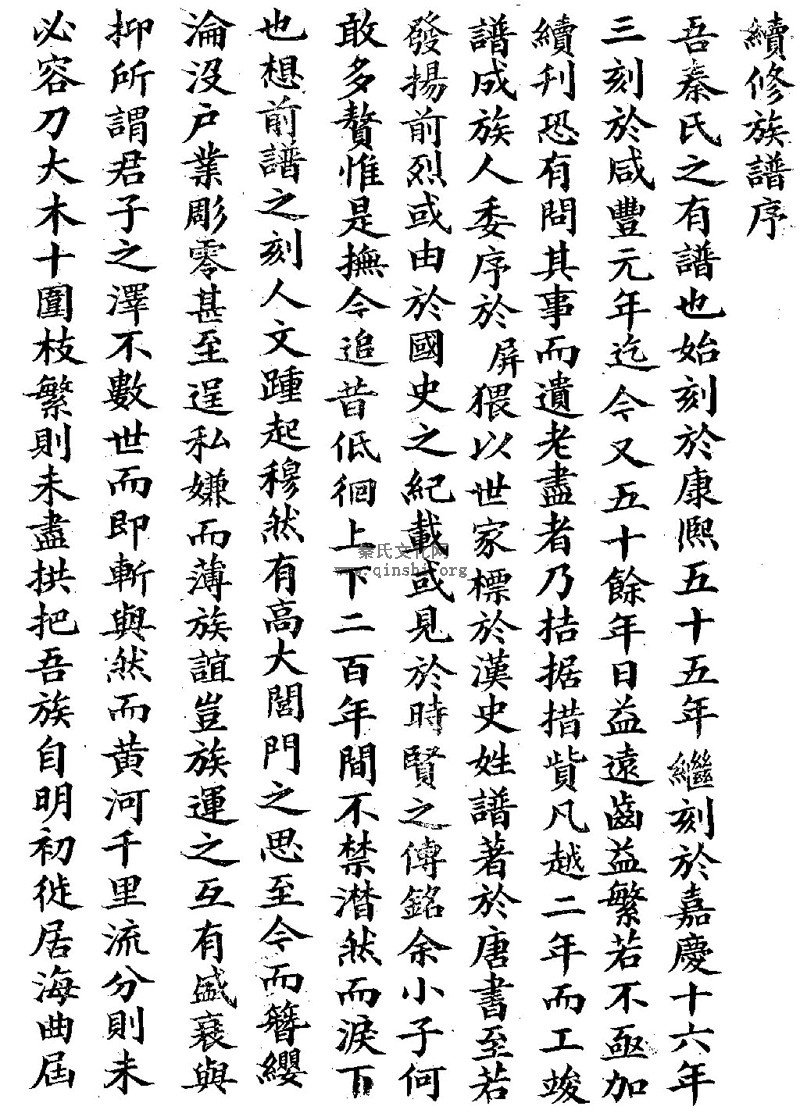 續修族譜序
吾秦氏之有譜也始刻於康熙五十五年繼刻於嘉慶十六年
三刻於咸豐元年迄今又五十餘年日益遠齒益繁若不亟加
續刋恐有問其事而遺老盡者乃拮据措貲凡越二年而工竣
譜成族人委序於屏猥以世家標於漢史姓譜著於唐書至若
發揚前烈或由於國史之紀載或見於時賢之傳銘余小子何
敢多贅惟是撫今追昔低徊上下二百年間不禁潸然而淚下
也想前譜之刻人文踵起穆然有高大閭門之思至今而簪纓
淪沒户業彫零甚至逞私嫌而薄族誼豈族運之互有盛衰與
抑所謂君子之澤不數世而即斬與然而黄河千里流分則未
必容刀大木十圍枝繁則未盡拱把吾族自明初徙居海曲屆
秦氏文化网
www.qinshi.org